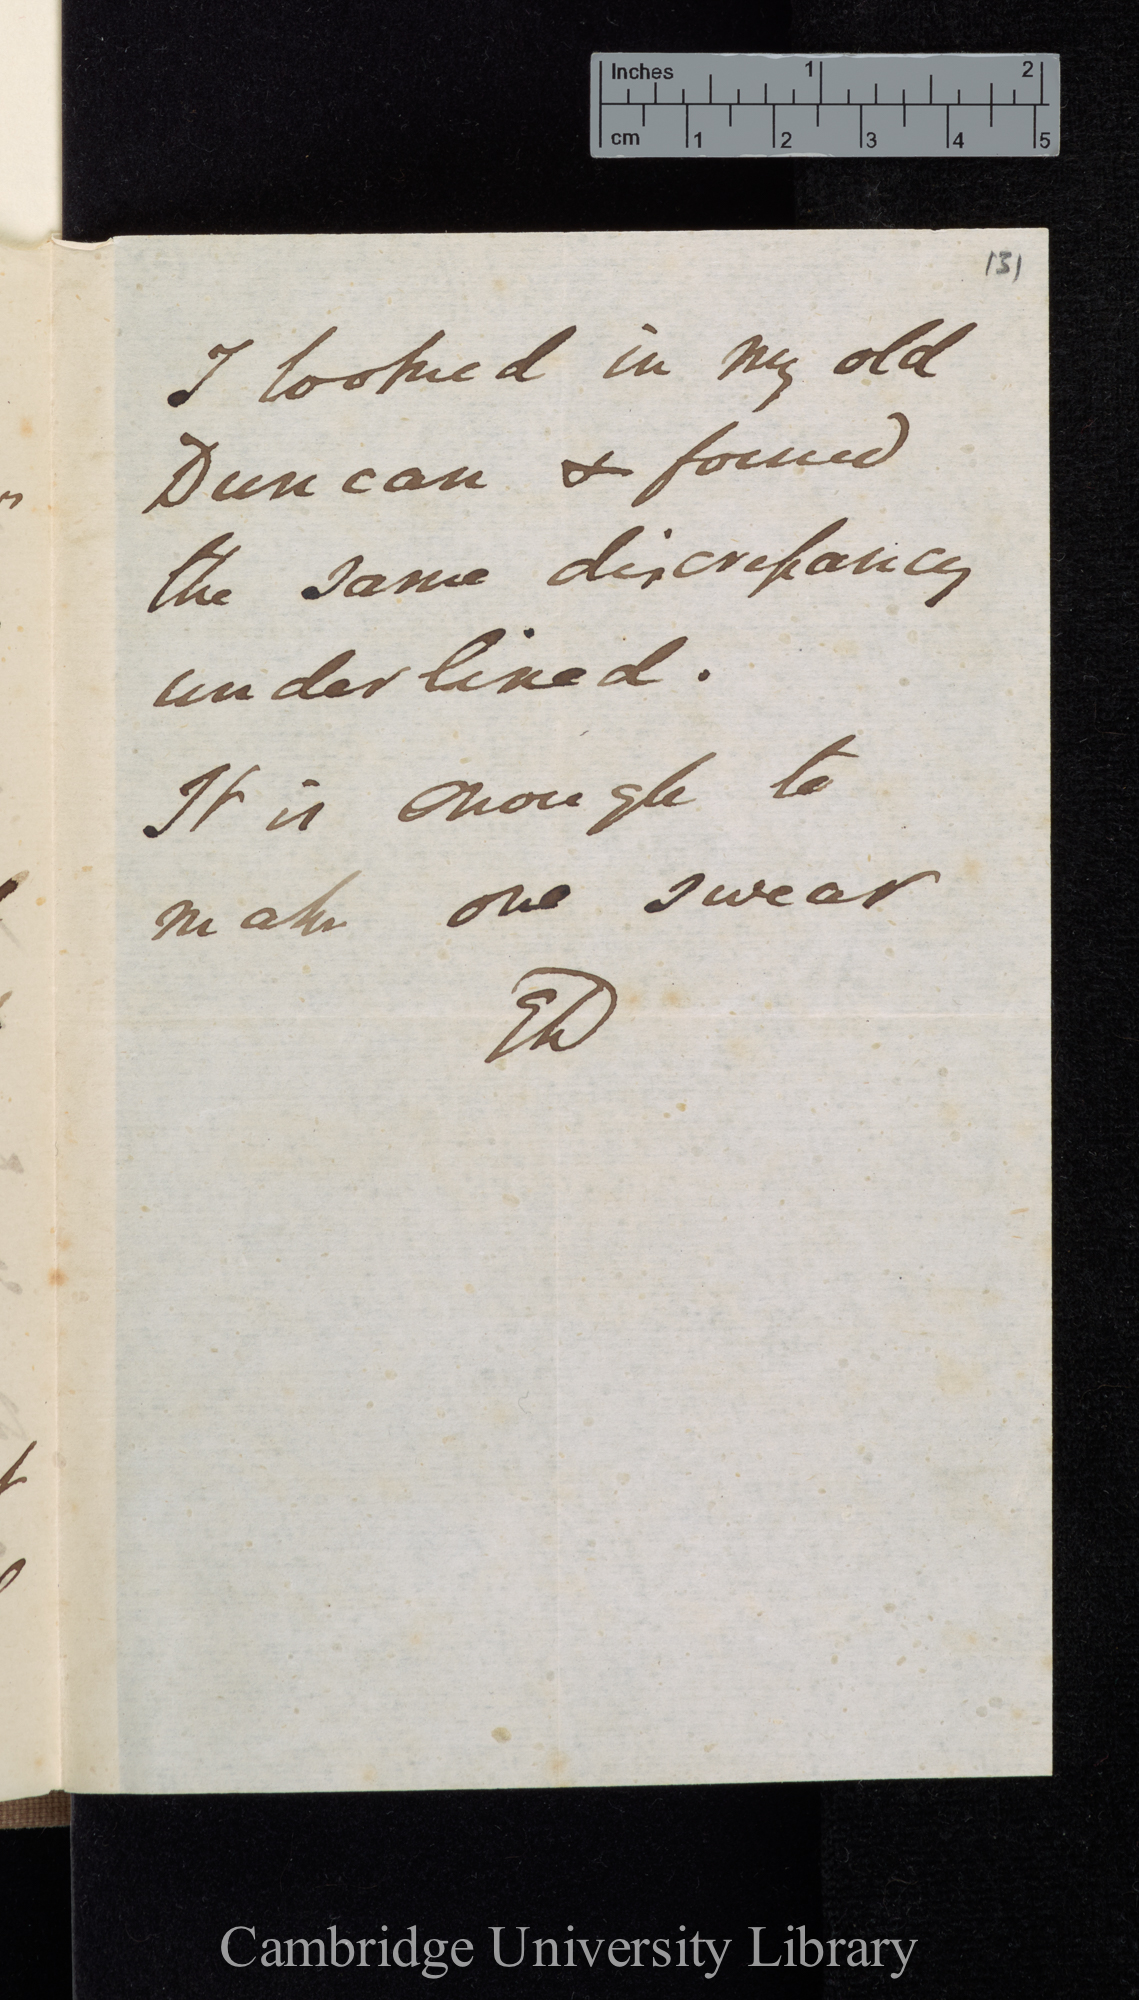 Inches 1 2
cm 1 2 3 4 5
131
I looked in my old
Duncan & found
the same discrepancy
underlined.
It is enough to
make one swear
ED
Cambridge University Library